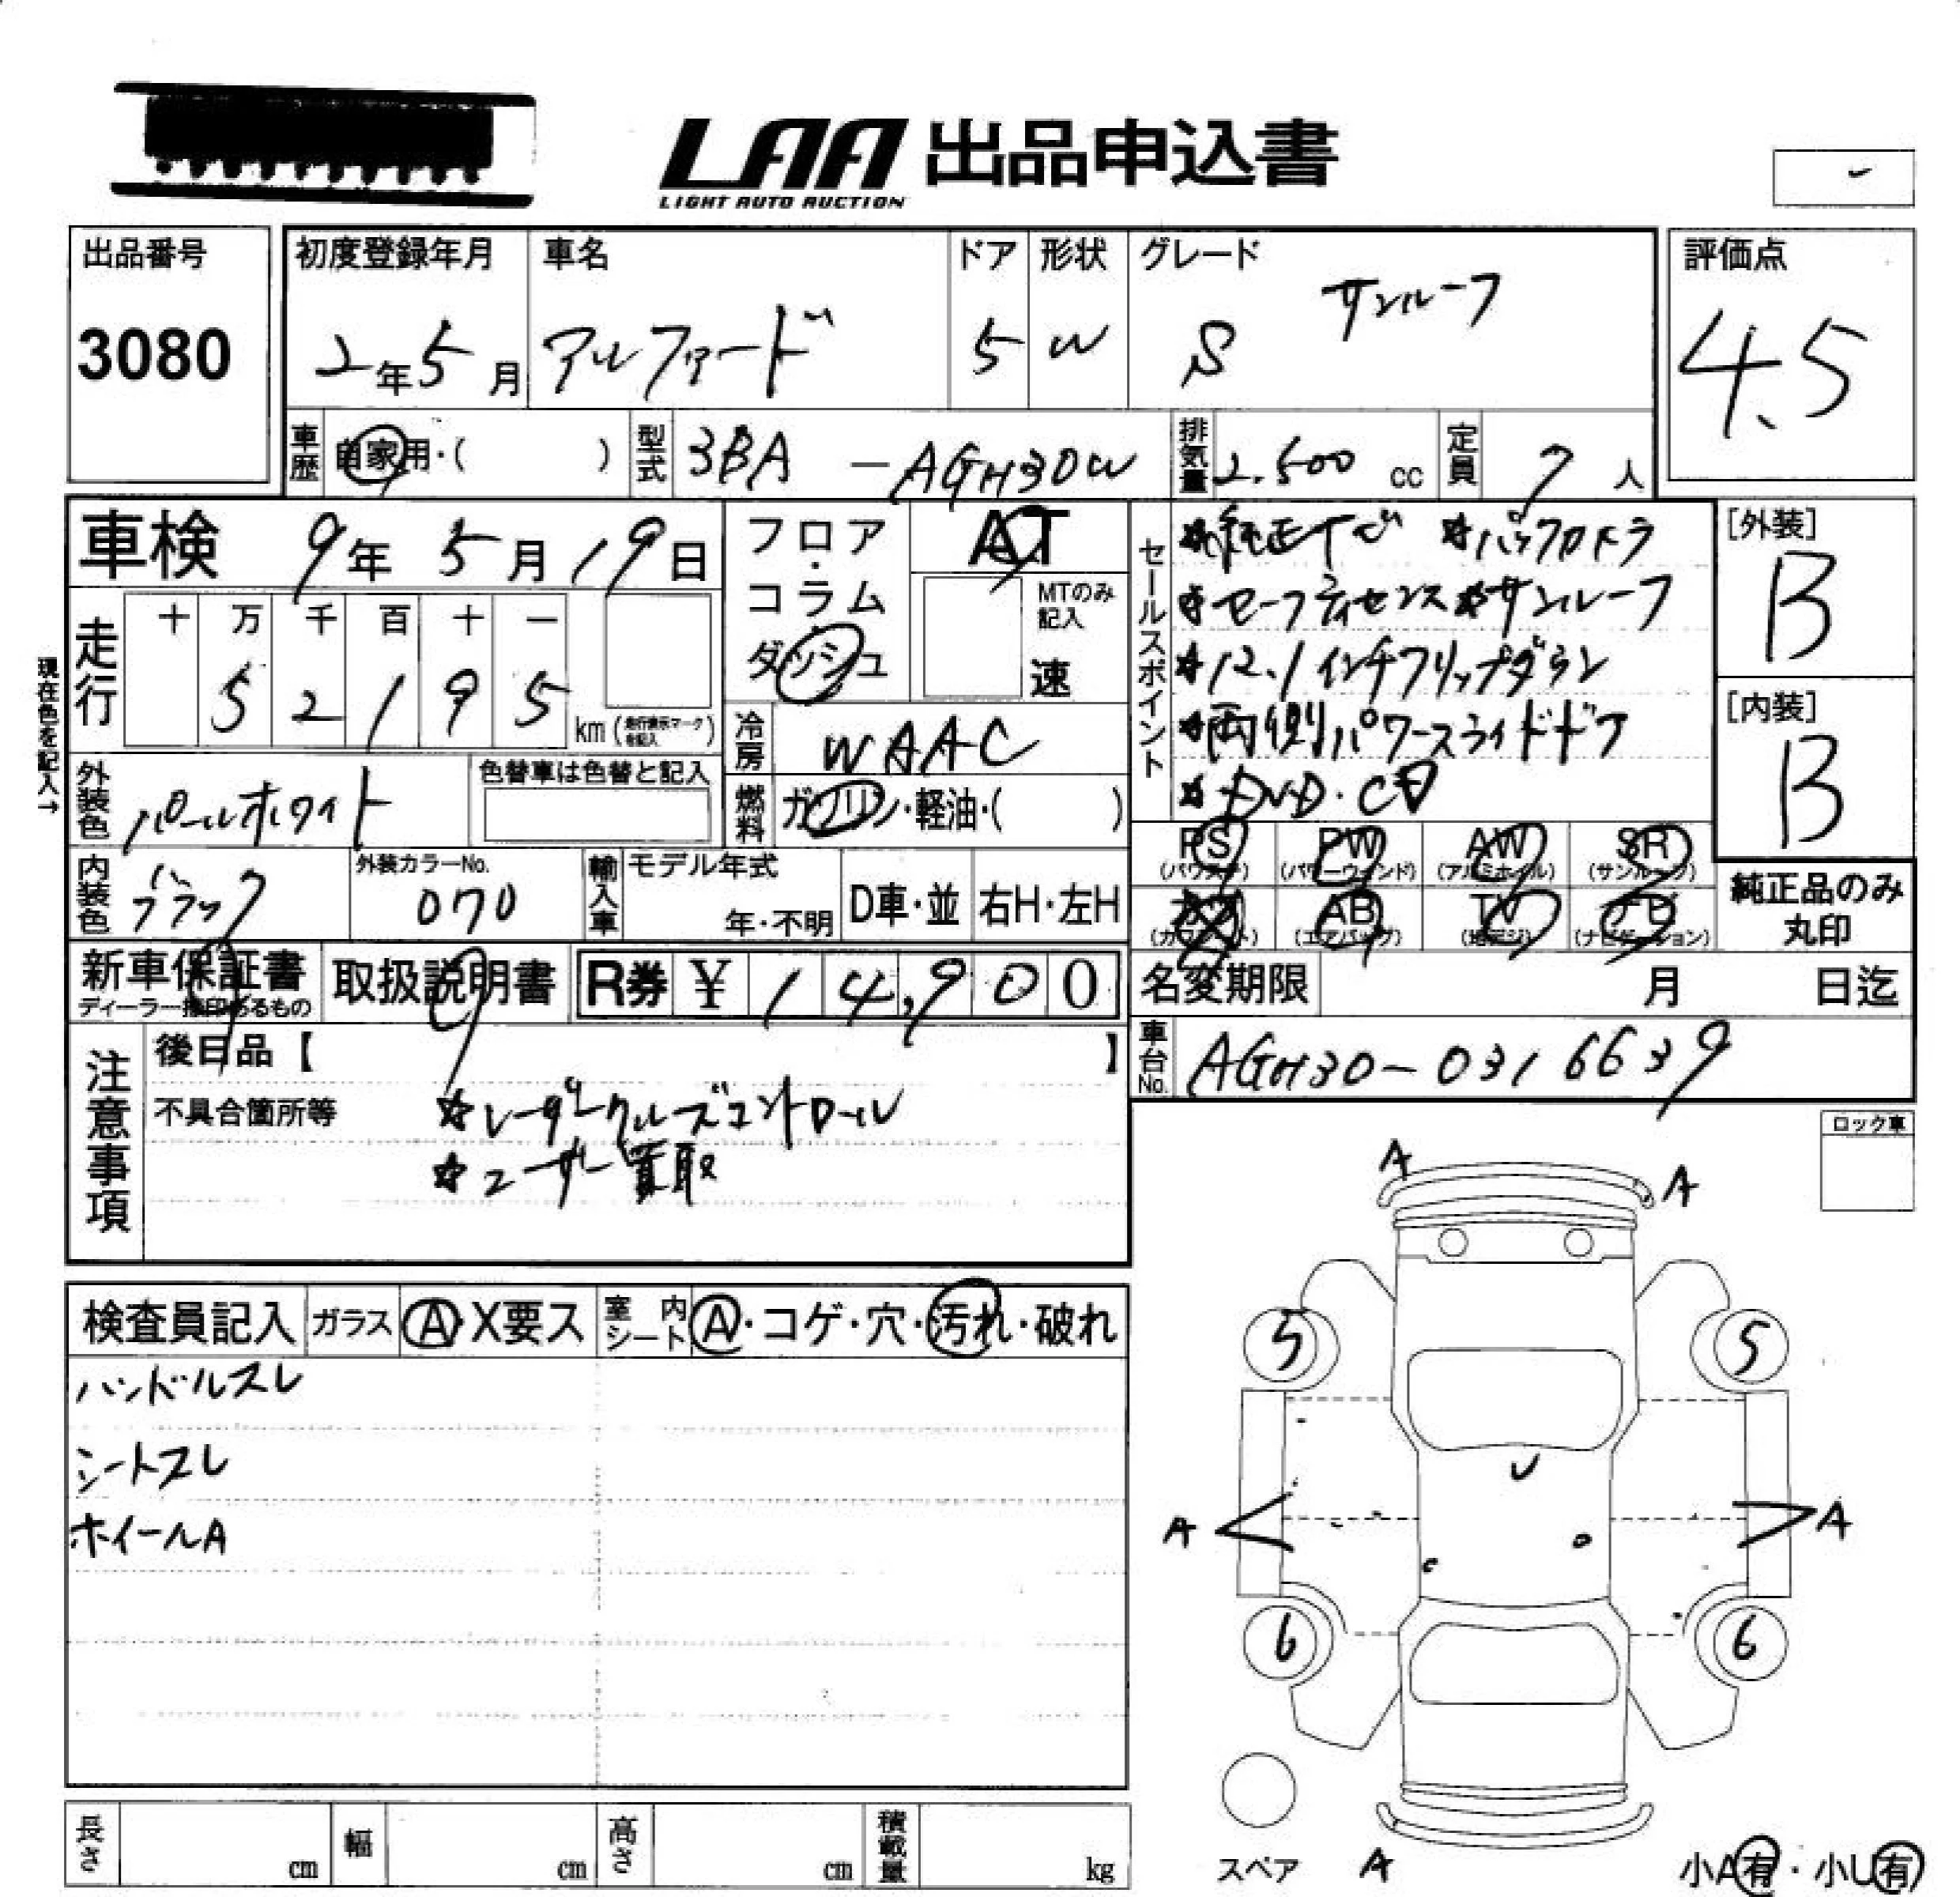 LAA 出品申込書
LIGHT AUTO AUCTION
出品番号
3080
初度登録年月
2年5月
車名
アルファード
ドア
5
形状
W
グレード
S サンルーフ
評価点
4.5
車歴 自家用・( )
型式 3BA-AGH30W
排気量 2.500 cc
定員 7人
車検 9年5月19日
フロア・コラム・ダッシュ
AT
MTのみ記入
速
現在色を記入→
走行
十 万 千 百 十 一
5 2 1 9 5 km (走行表示マークを記入)
冷房 WAAC
外装色 パールホワイト
色替車は色替と記入
燃料 ガソリン・軽油・( )
内装色 ブラック
外装カラーNo.
070
輸入車
モデル年式
年・不明
D車・並
右H・左H
セールスポイント
★純正TV ★バックカメラ
★セーフティセンス★サンルーフ
★12.1インチフリップダウン
★両側パワースライドドア
★DVD・CD
[外装]
B
[内装]
B
PS (パワステ) PW (パワーウインド) AW (アルミホイル) SR (サンルーフ)
(カワシート) AB (エアバッグ) TV (地デジ) ナビ (ナビゲーション)
純正品のみ丸印
新車保証書
ディーラー捺印あるもの
取扱説明書
R券 ¥14,900
名変期限 月 日迄
車台No. AGH30-0316639
注意事項
後日品【 】
不具合箇所等
★レーダークルーズコントロール
★ユーザー買取
ロック車
検査員記入
ガラス A・X要ス
室内シート A・コゲ・穴・汚れ・破れ
ハンドルスレ
シートスレ
ホイールA
A A
5 5
U
A A
6 6
スペア A
小A有・小U有
長さ cm 幅 cm 高さ cm 積載量 kg